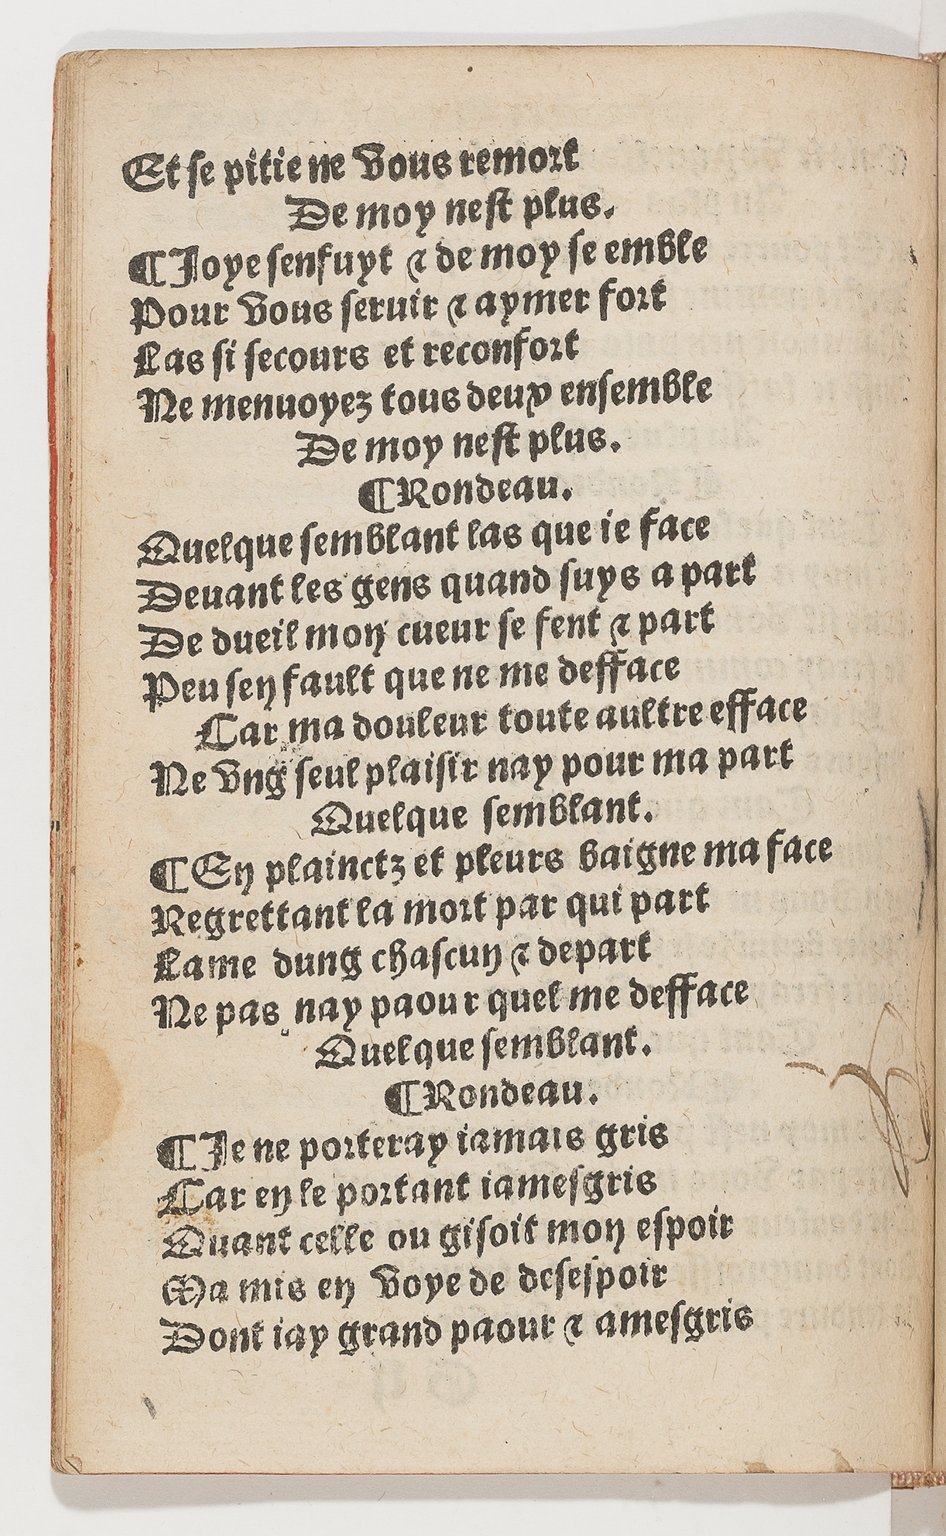 Et se pitie ne vous remort
De moy nest plus.
¶Joye senfuyt ⁊ de moy se emble
Pour vous seruir ⁊ aymer fort
Las si secours et reconfort
Ne menuoyez tous deux ensemble
De moy nest plus.
¶Rondeau.
Quelque semblant las que ie face
Deuant les gens quand suys a part
De dueil mon cueur se fent ⁊ part
Peu sen fault que ne me defface
Car ma douleur toute aultre efface
Ne vng seul plaisir nay pour ma part
Quelque semblant.
¶En plainctz et pleurs baigne ma face
Regrettant la mort par qui part
Lame dung chascun ⁊ depart
Ne pas nay paour quel me defface
Quelque semblant.
¶Rondeau.
¶Je ne porteray iamais gris
Car en le portant iamesgris
Quant celle ou gisoit mon espoir
Ma mis en voye de desespoir
Dont iay grand paour ⁊ amesgris